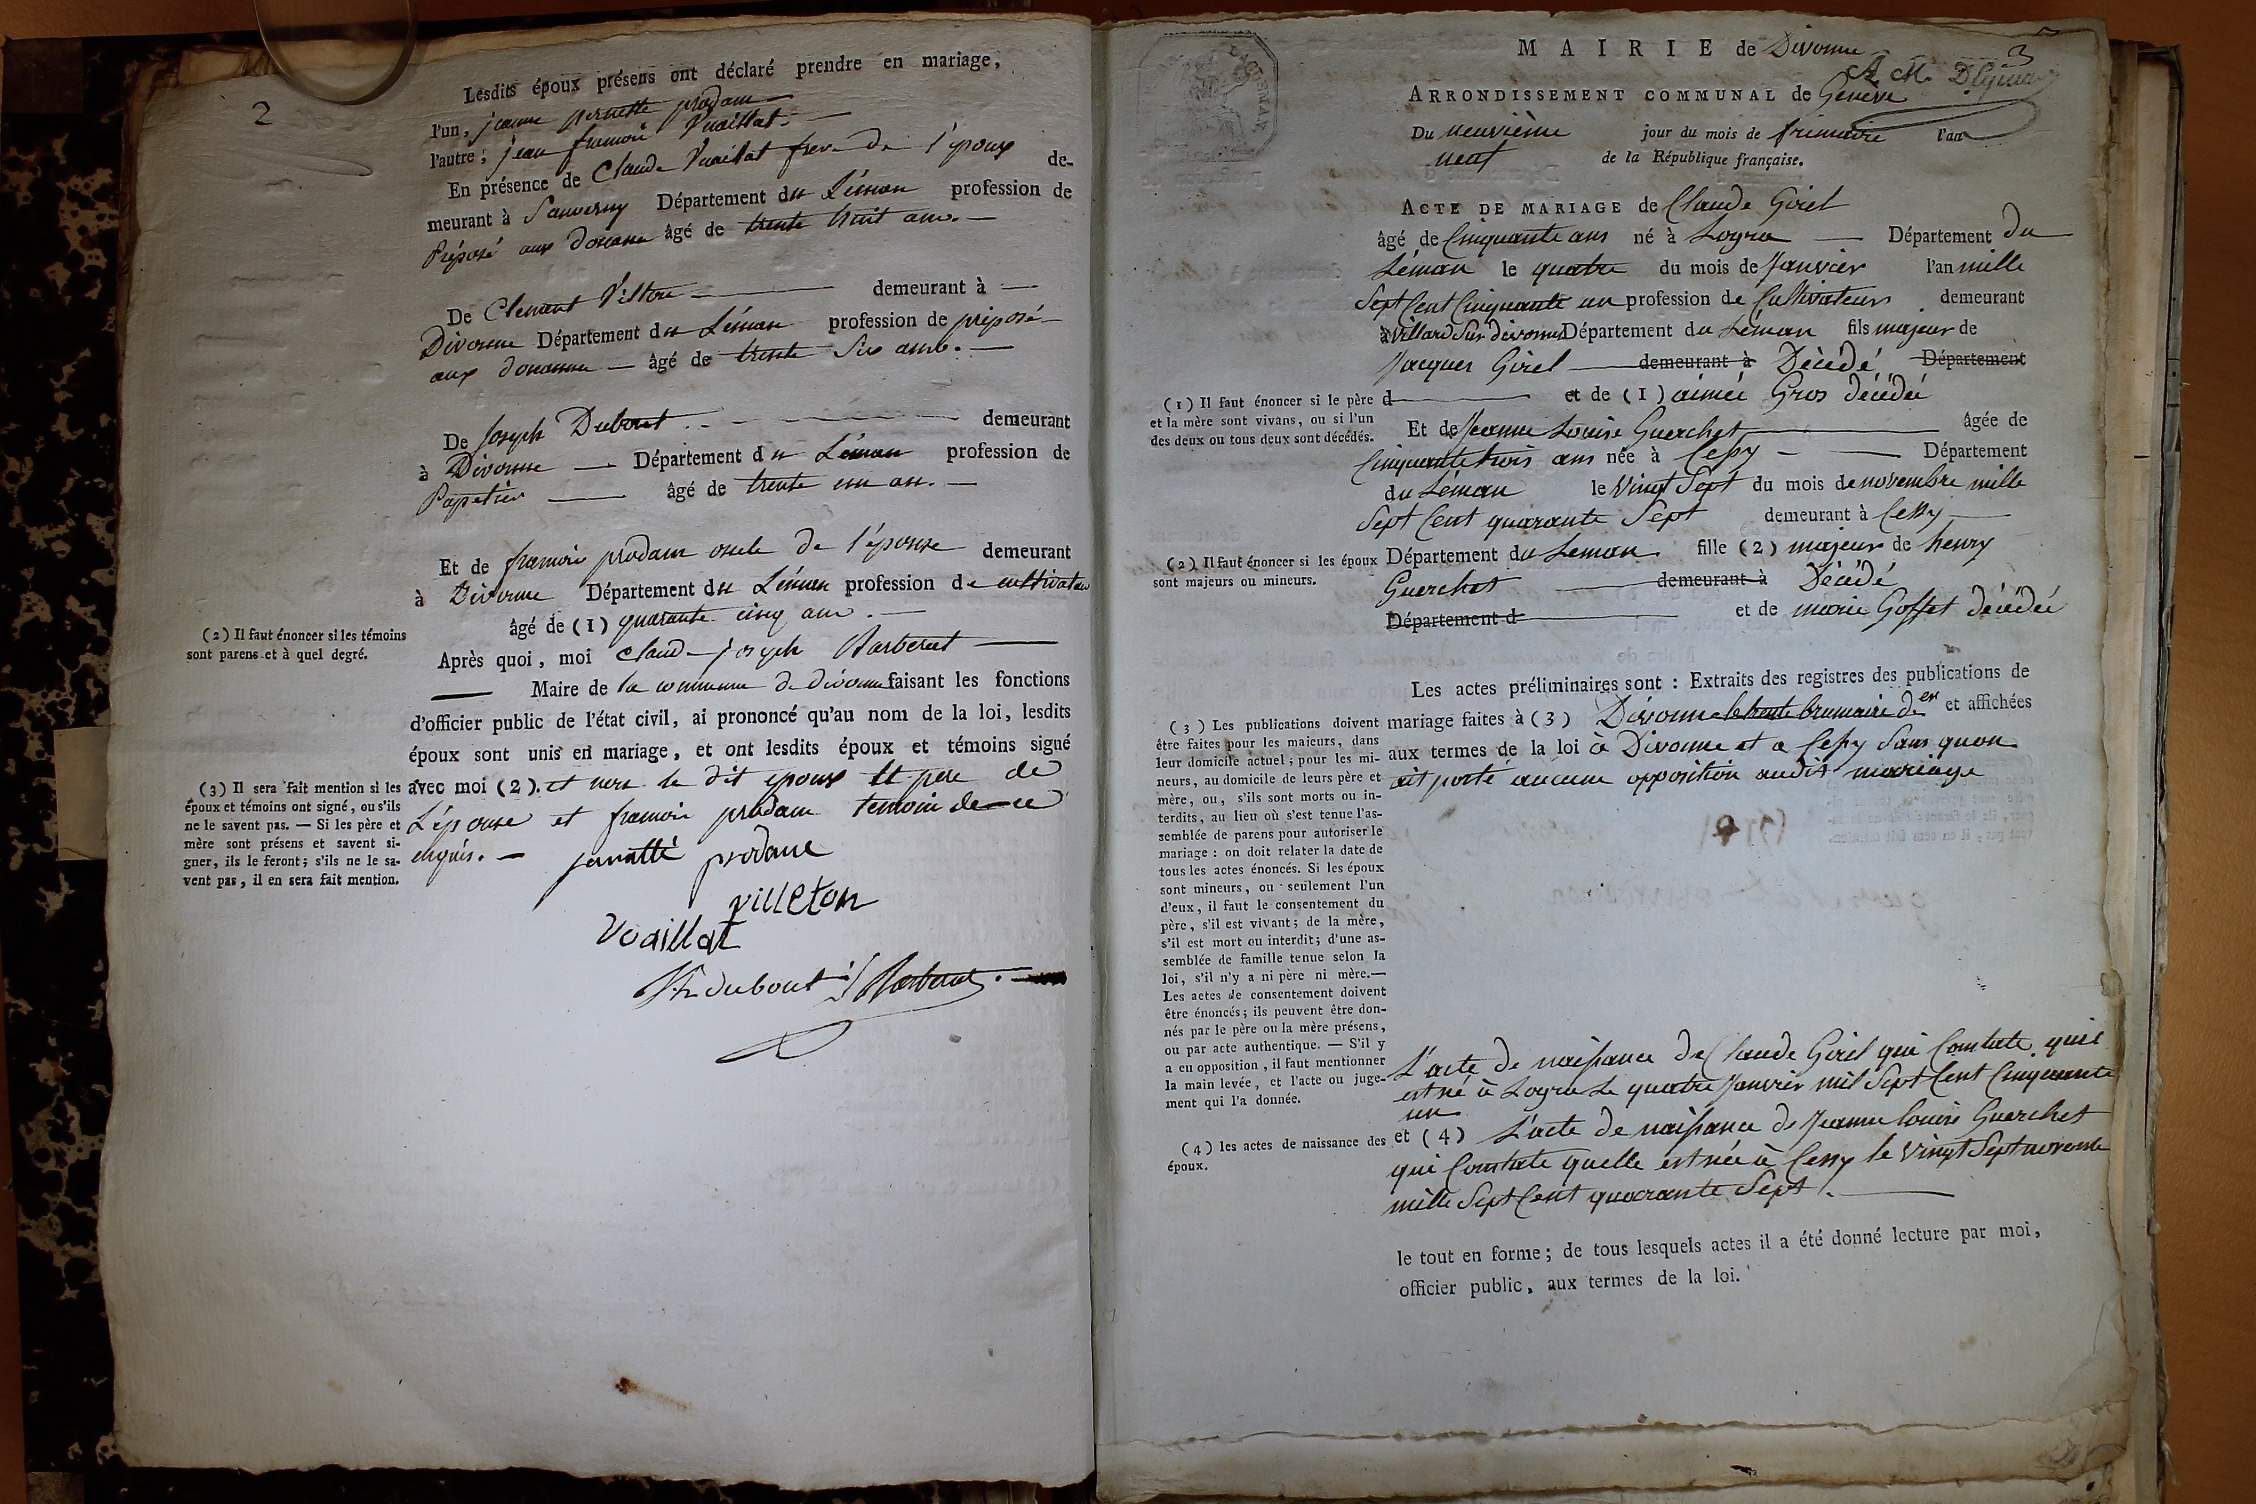 2
Lesdits époux présens ont déclaré prendre en mariage,
l'un, jeanne pernette prodam
l'autre; jean francois Vuaillat.
En présence de Claude Vuaillat frere de l'époux de-
meurant à Sauverny Département du Léman profession de
Préposé aux douane âgé de trente huit ans.
De Clement Villton demeurant à
Divonne Département du Léman profession de préposé
aux douanne âgé de trente six ans.
De Joseph Dubout demeurant
à Divonne Département du Léman profession de
Papetier âgé de trente un an.
Et de francois prodam oncle de l'épouse demeurant
à Divonne Département du Léman profession de cultivateur
âgé de (1) quarante cinq ans.
(2) Il faut énoncer si les témoins
sont parens et à quel degré.
Après quoi, moi claude joseph Barberat
Maire de la commune de divonne faisant les fonctions
d'officier public de l'état civil, ai prononcé qu'au nom de la loi, lesdits
époux sont unis en mariage, et ont lesdits époux et témoins signé
(3) Il sera fait mention si les
époux et témoins ont signé, ou s'ils
ne le savent pas. — Si les père et
mère sont présens et savent si-
gner, ils le feront; s'ils ne le sa-
vent pas, il en sera fait mention.
avec moi (2). et non le dit époux et pere de
L'épouse et francois prodam temoin de ce
enquis. — janatté prodame
villeton
Vuaillat
Jh dubout Barberat
3
MAIRIE de Divonne
ARRONDISSEMENT COMMUNAL de Genève
Du neuvième jour du mois de frimaire l'an
neuf de la République française.
ACTE DE MARIAGE de Claude Girel
âgé de Cinquante ans né à Logra Département du
Léman le quatre du mois de Janvier l'an mille
Sept Cent Cinquante un profession de Cultivateur demeurant
à Villard Sur divonne Département du Léman fils majeur de
Jacques Girel demeurant à Décédé Département
d et de (1) aimée Gros décédée
(1) Il faut énoncer si le père
et la mère sont vivans, ou si l'un
des deux ou tous deux sont décédés.
Et de Jeanne Louise Guerchet âgée de
Cinquante trois ans née à Cessy Département
du Léman le Vingt Sept du mois de novembre mille
Sept Cent quarante Sept demeurant à Cessy
(2) Il faut énoncer si les époux
sont majeurs ou mineurs.
Département du Leman fille (2) majeur de henry
Guerchet demeurant à Décédé
Département d et de marie Goffet décédée
Les actes préliminaires sont : Extraits des registres des publications de
mariage faites à (3) Divonne le trente brumaire der et affichées
aux termes de la loi à Divonne et a Cessy Sans quon
ait porté aucune opposition audit mariage
(3) Les publications doivent
être faites pour les majeurs, dans
leur domicile actuel; pour les mi-
neurs, au domicile de leurs père et
mère, ou, s'ils sont morts ou in-
terdits, au lieu où s'est tenue l'as-
semblée de parens pour autoriser le
mariage : on doit relater la date de
tous les actes énoncés. Si les époux
sont mineurs, ou seulement l'un
d'eux, il faut le consentement du
père, s'il est vivant; de la mère,
s'il est mort ou interdit; d'une as-
semblée de famille tenue selon la
loi, s'il n'y a ni père ni mère.—
Les actes de consentement doivent
être énoncés; ils peuvent être don-
nés par le père ou la mère présens,
ou par acte authentique. — S'il y
a eu opposition, il faut mentionner
la main levée, et l'acte ou juge-
ment qui l'a donnée.
L'acte de naissance de Claude Girel qui Constate quil
est né à Logra Le quatre Janvier mil Sept Cent Cinquante
un
(4) les actes de naissance des
époux.
et (4) L'acte de naissance de Jeanne louise Guerchet
qui Constate quelle est née à Cessy le Vingt Sept novembre
mille Sept Cent quarante Sept.
le tout en forme; de tous lesquels actes il a été donné lecture par moi,
officier public, aux termes de la loi.